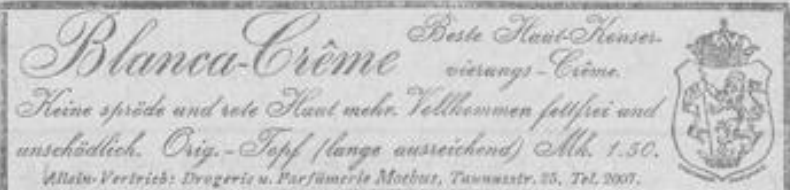 Blanca-Crême
Beste Haut-Konser-
vierungs-Crême.
Keine spröde und rote Haut mehr. Vollkommen fettfrei und
unschädlich. Orig.-Topf (lange ausreichend) Mk. 1.50.
Allein-Vertrieb: Drogerie u. Parfümerie Moebus, Taunusstr. 25, Tel. 2007.